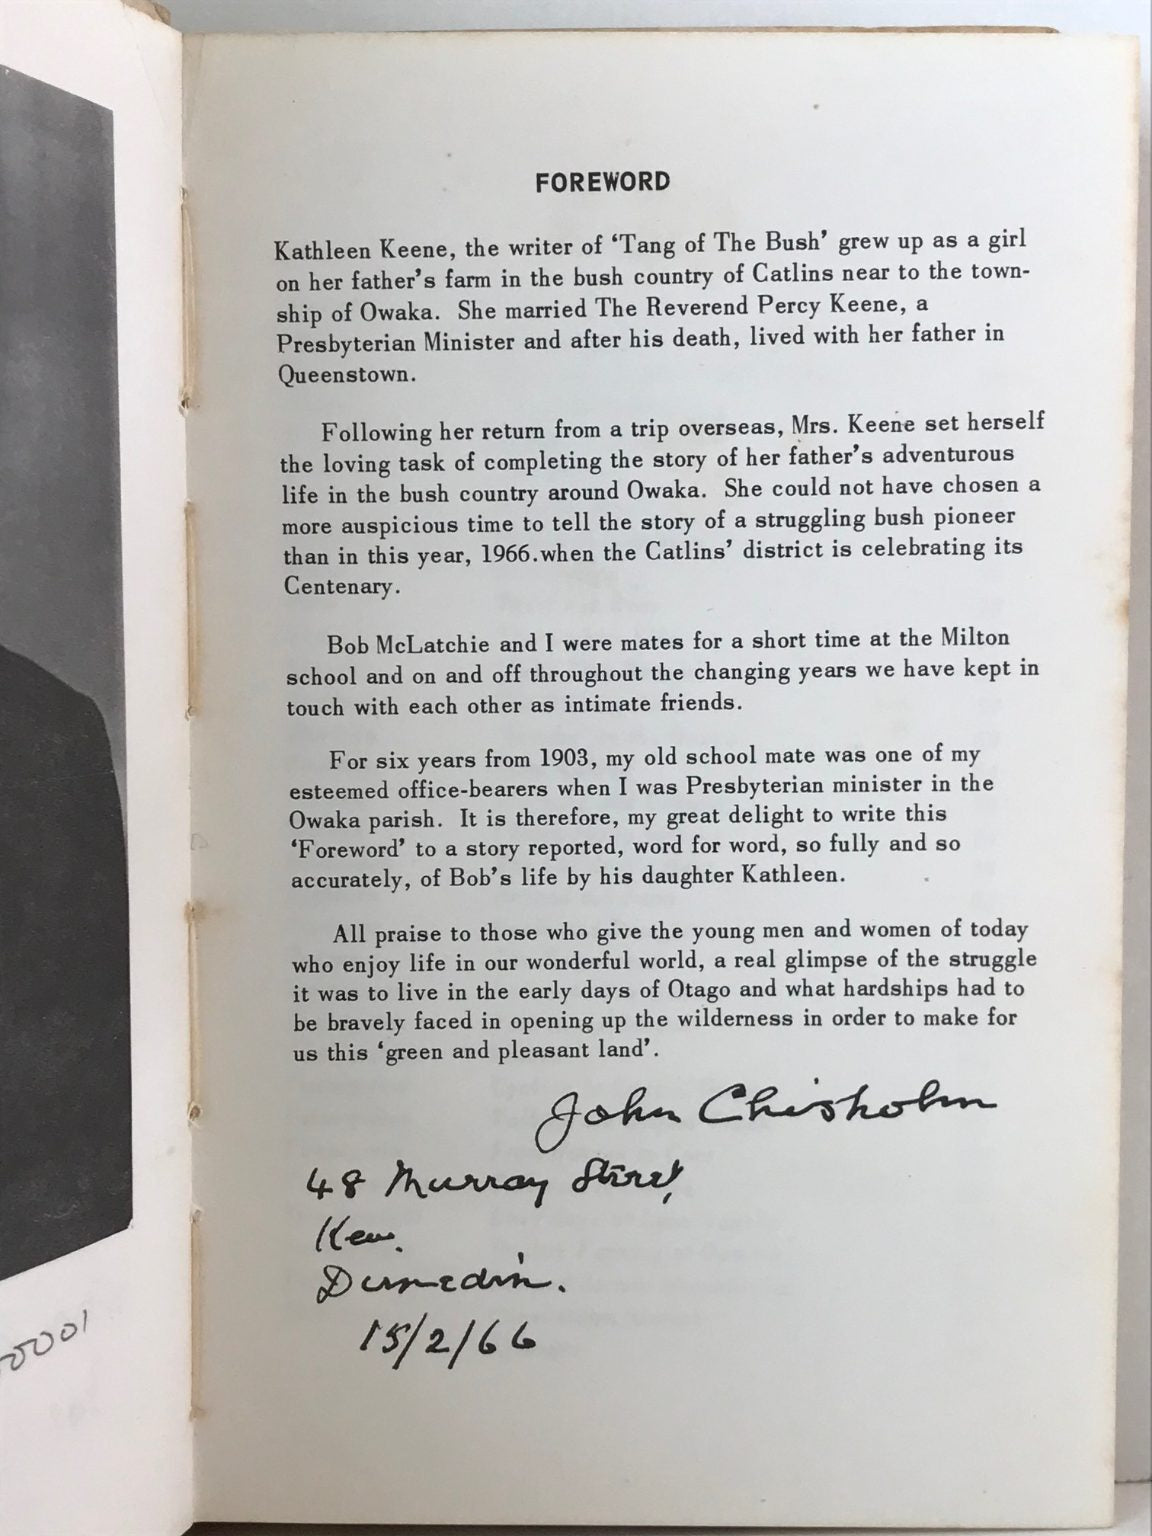 FOREWORD
Kathleen Keene, the writer of ‘Tang of The Bush’ grew up as a girl
on her father’s farm in the bush country of Catlins near to the town-
ship of Owaka. She married The Reverend Percy Keene, a
Presbyterian Minister and after his death, lived with her father in
Queenstown.
Following her return from a trip overseas, Mrs. Keene set herself
the loving task of completing the story of her father’s adventurous
life in the bush country around Owaka. She could not have chosen a
more auspicious time to tell the story of a struggling bush pioneer
than in this year, 1966.when the Catlins’ district is celebrating its
Centenary.
Bob McLatchie and I were mates for a short time at the Milton
school and on and off throughout the changing years we have kept in
touch with each other as intimate friends.
For six years from 1903, my old school mate was one of my
esteemed office-bearers when I was Presbyterian minister in the
Owaka parish. It is therefore, my great delight to write this
‘Foreword’ to a story reported, word for word, so fully and so
accurately, of Bob’s life by his daughter Kathleen.
All praise to those who give the young men and women of today
who enjoy life in our wonderful world, a real glimpse of the struggle
it was to live in the early days of Otago and what hardships had to
be bravely faced in opening up the wilderness in order to make for
us this ‘green and pleasant land’.
John Chisholm
48 Murray Street,
Kew.
Dunedin.
15/2/66